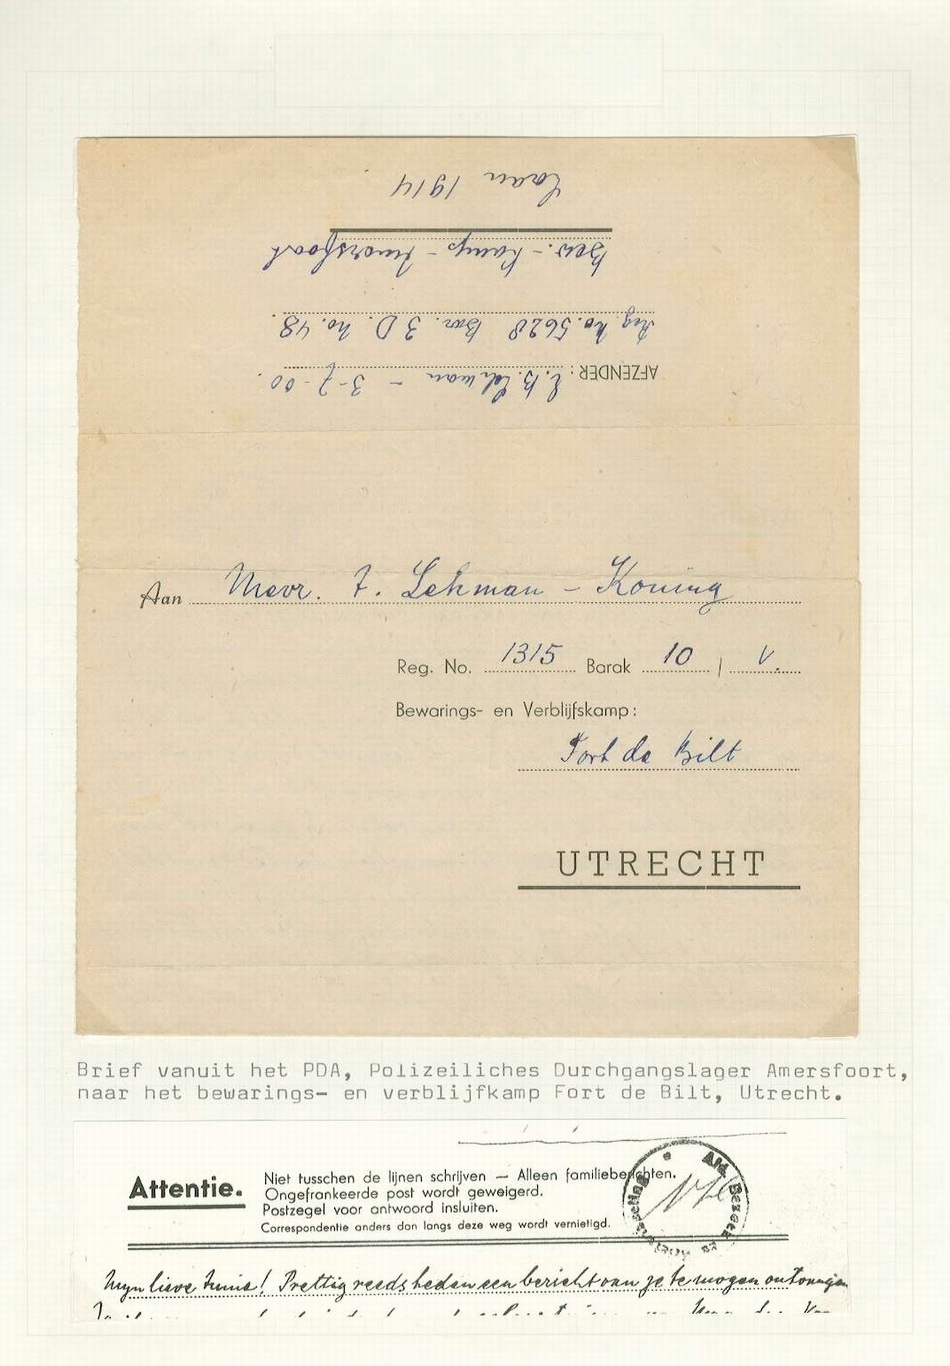 Laan 1914
Bew.- Kamp - Amersfoort
Reg. No. 5628 Bar. 3 D. no. 48.
AFZENDER: B. Lehman - 3-7-00.
Aan Mevr. F. Lehman - Koning
Reg. No. 1315 Barak 10 / V.
Bewarings- en Verblijfskamp:
Fort de Bilt
UTRECHT
Brief vanuit het PDA, Polizeiliches Durchgangslager Amersfoort,
naar het bewarings- en verblijfkamp Fort de Bilt, Utrecht.
Attentie.
Niet tusschen de lijnen schrijven — Alleen familieberichten.
Ongefrankeerde post wordt geweigerd.
Postzegel voor antwoord insluiten.
Correspondentie anders dan langs deze weg wordt vernietigd.
Afd. Bezoek
Mijn lieve ! Prettig reeds heden een bericht van je te mogen ontvangen